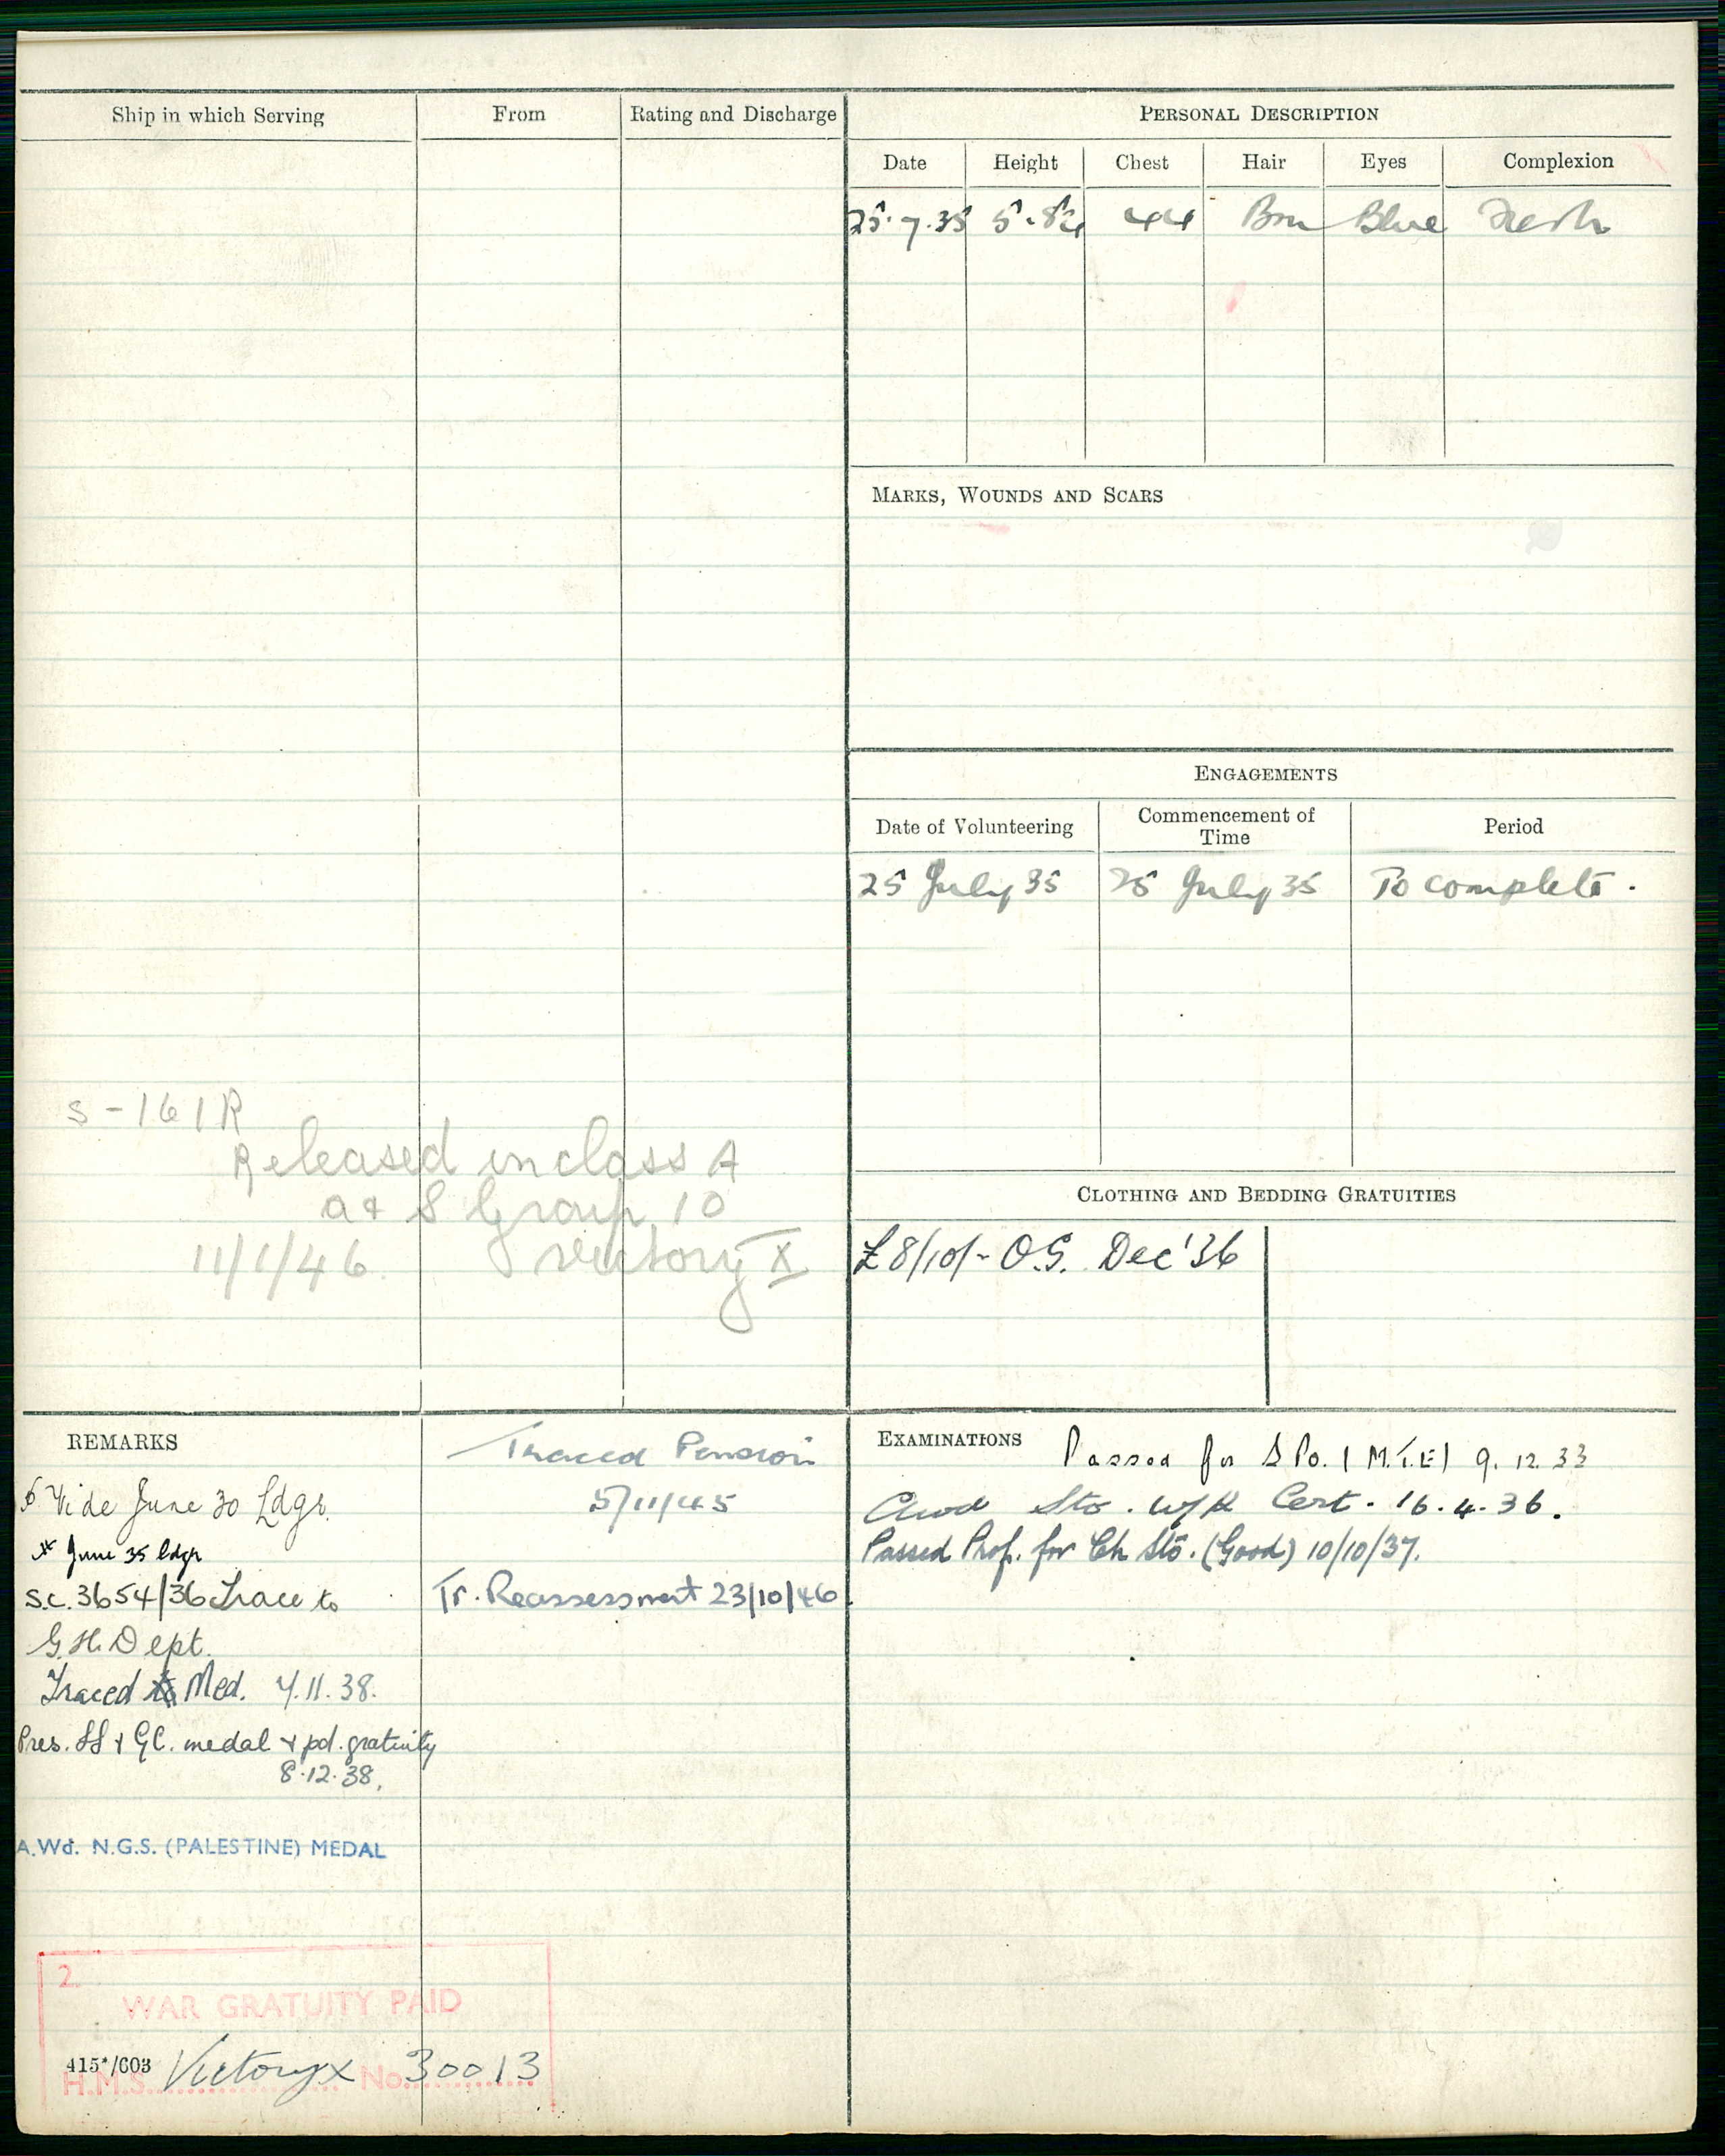 Ship in which Serving From Rating and Discharge
S-161R
Released in class A
a & S Group 10
11/1/46 Victory X
PERSONAL DESCRIPTION
Date Height Chest Hair Eyes Complexion
25.7.35 5-8¼ 44 Brn Blue Fresh
MARKS, WOUNDS AND SCARS
ENGAGEMENTS
Date of Volunteering Commencement of Time Period
25 July 35 25 July 35 To complete.
CLOTHING AND BEDDING GRATUITIES
£8/10/- O.S. Dec '36
REMARKS
Vide June 30 Ldgr.
* June 35 ldgr
S.C. 3654/36 Trace to
G.H. Dept.
Traced to Med. 4.11.38.
Pres. LS & GC. medal & pd. gratuity
8.12.38.
A.Wd. N.G.S. (PALESTINE) MEDAL
Traced Pension
5/11/45
Tr. Reassessment 23/10/46.
2.
WAR GRATUITY PAID
415*/603
H.M.S. Victory X No. 30013
EXAMINATIONS Passed for S Po. (M.T.E) 9.12.33
Awd Sto. W/K Cert. 16.4.36.
Passed Prof. for Ch Sto. (Good) 10/10/37.